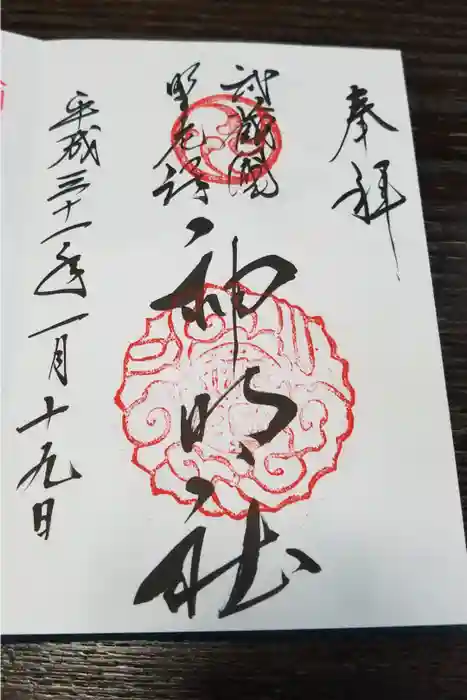 奉拝
武蔵国
野老澤
神明社
平成三十一年一月十九日